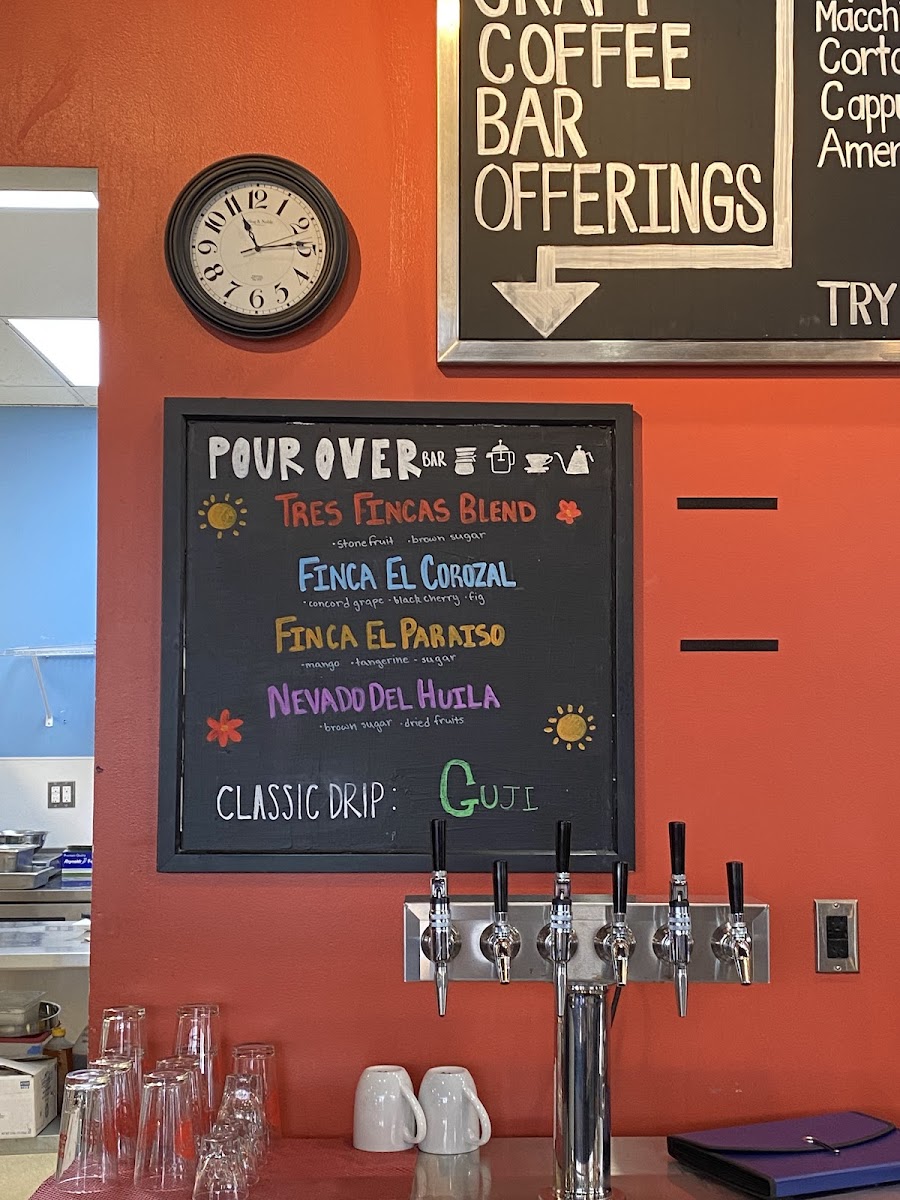 COFFEE
BAR
OFFERINGS
TRY
12
1
2
3
4
5
6
7
8
9
10
11
POUR OVER BAR
TRES FINCAS BLEND
·stone fruit ·brown sugar
FINCA EL COROZAL
·concord grape ·black cherry ·fig
FINCA EL PARAISO
·mango ·tangerine - sugar
NEVADO DEL HUILA
·brown sugar ·dried fruits
CLASSIC DRIP: GUJI